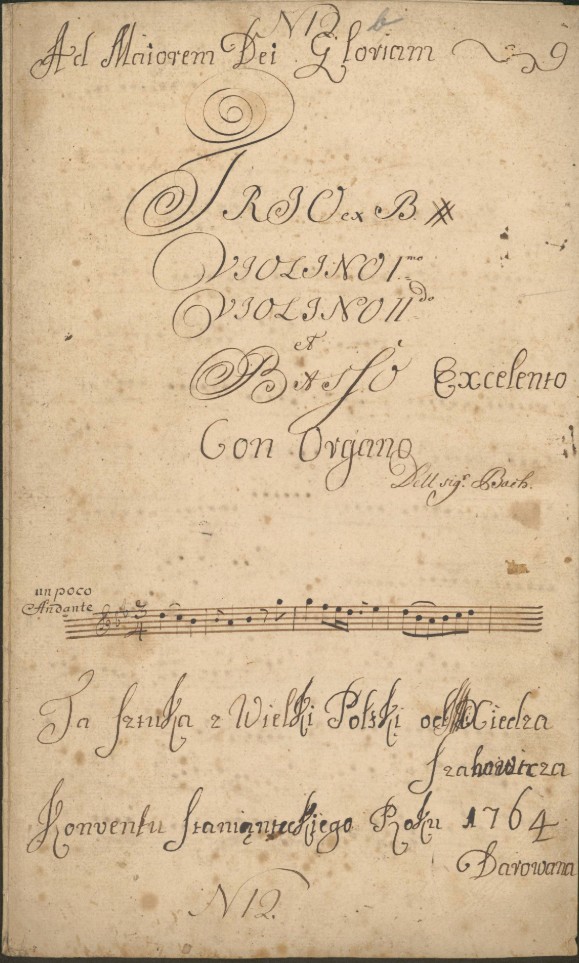 N 12. b
Ad Maiorem Dei Gloriam 9
TRIO ex B #
VIOLINO I mo
VIOLINO II do
et
BASSO Excelento
Con Organo
Dell sigr. Bach.
un poco
Andante
3/4
Ta sztuka z Wielki Polski od Xiedza
Konventu staniąteckiego Roku 1764
Darowana
N 12.